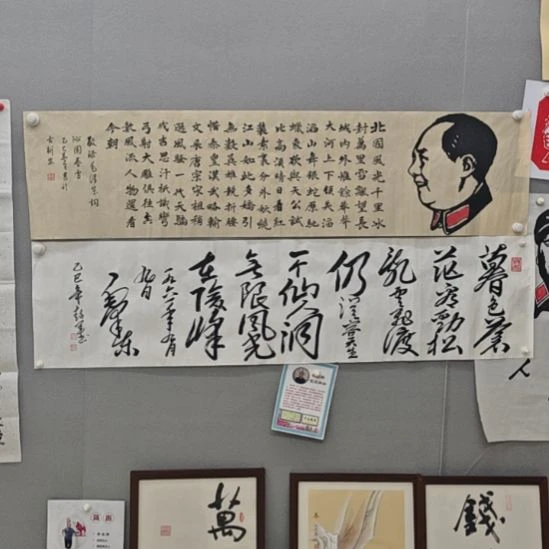 北國風光千里冰
封萬里雪飄望長
城内外惟餘莽莽
大河上下頓失滔
滔山舞銀蛇原馳
蠟象欲與天公試
比高須晴日看紅
裝素裹分外妖嬈
江山如此多嬌引
無數英雄競折腰
惜秦皇漢武略輸
文采唐宗宋祖稍
遜風騷一代天驕
成吉思汗祇識彎
弓射大雕俱往矣
數風流人物還看
今朝
敬錄毛澤東詞
沁園春雪
暮色蒼
茫看勁松
亂雲飛渡
仍從容天生
一个仙人洞
無限風光
在險峰
一九六一年九月
九日
毛澤東
乙巳年
人
萬
錢